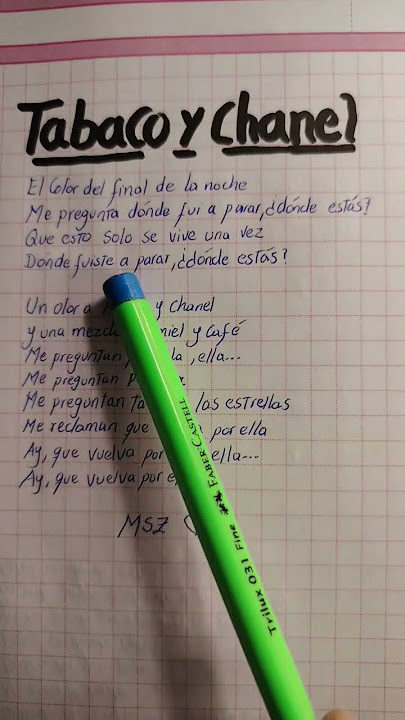 Tabaco y Chanel
El Color del final de la noche
Me pregunta dónde fui a parar, ¿dónde estás?
Que esto solo se vive una vez
Donde fuiste a parar, ¿dónde estás?
Un olor a y Chanel
y una miel y Café
Me preguntan , ella...
Me preguntan
Me preguntan las estrellas
Me reclaman que por ella
Ay, que vuelva por ella...
Ay, que vuelva por
MSZ
Trilux 031 Fine FABER-CASTELL